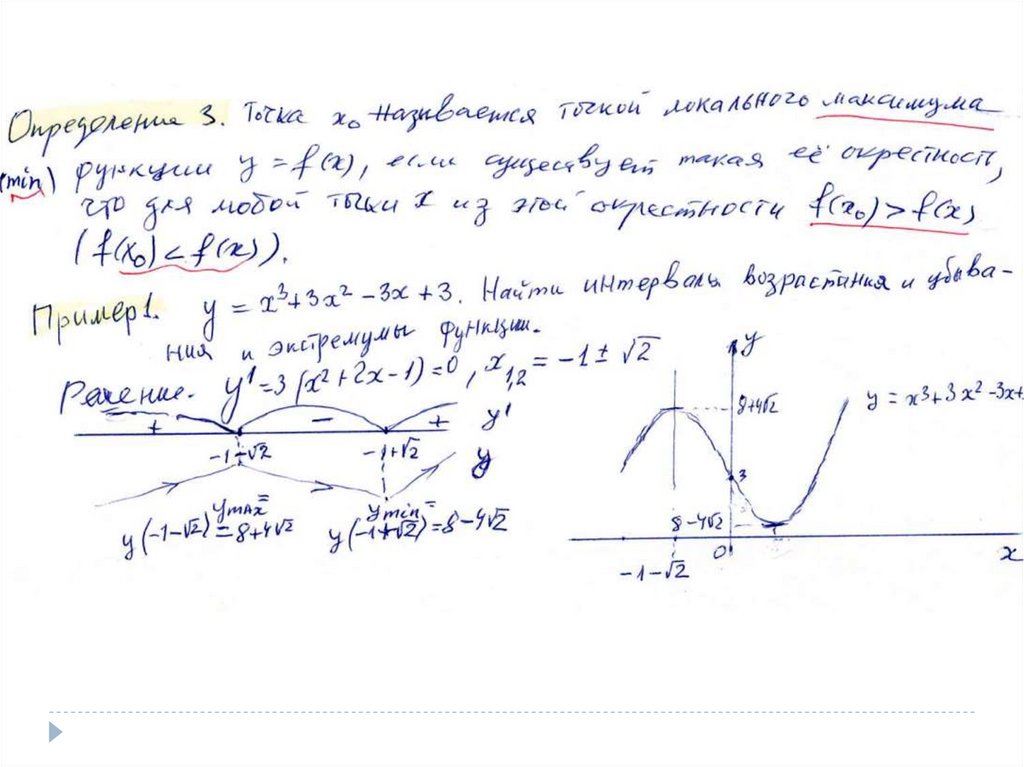 Определение 3. Точка x₀ называется точкой локального максимума
(min) функции y = f(x), если существует такая её окрестность,
что для любой точки x из этой окрестности f(x₀) > f(x)
(f(x₀) < f(x)).
Пример 1. y = x³+3x²-3x+3. Найти интервалы возрастания и убыва-
ния и экстремумы функции.
Решение. y' = 3(x²+2x-1) = 0, x₁,₂ = -1 ± √2
+ − + y'
-1-√2 -1+√2 y
y max = y min =
y(-1-√2) = 8+4√2 y(-1+√2) = 8-4√2
y
8+4√2 y = x³+3x²-3x+
3
8-4√2
0 x
-1-√2